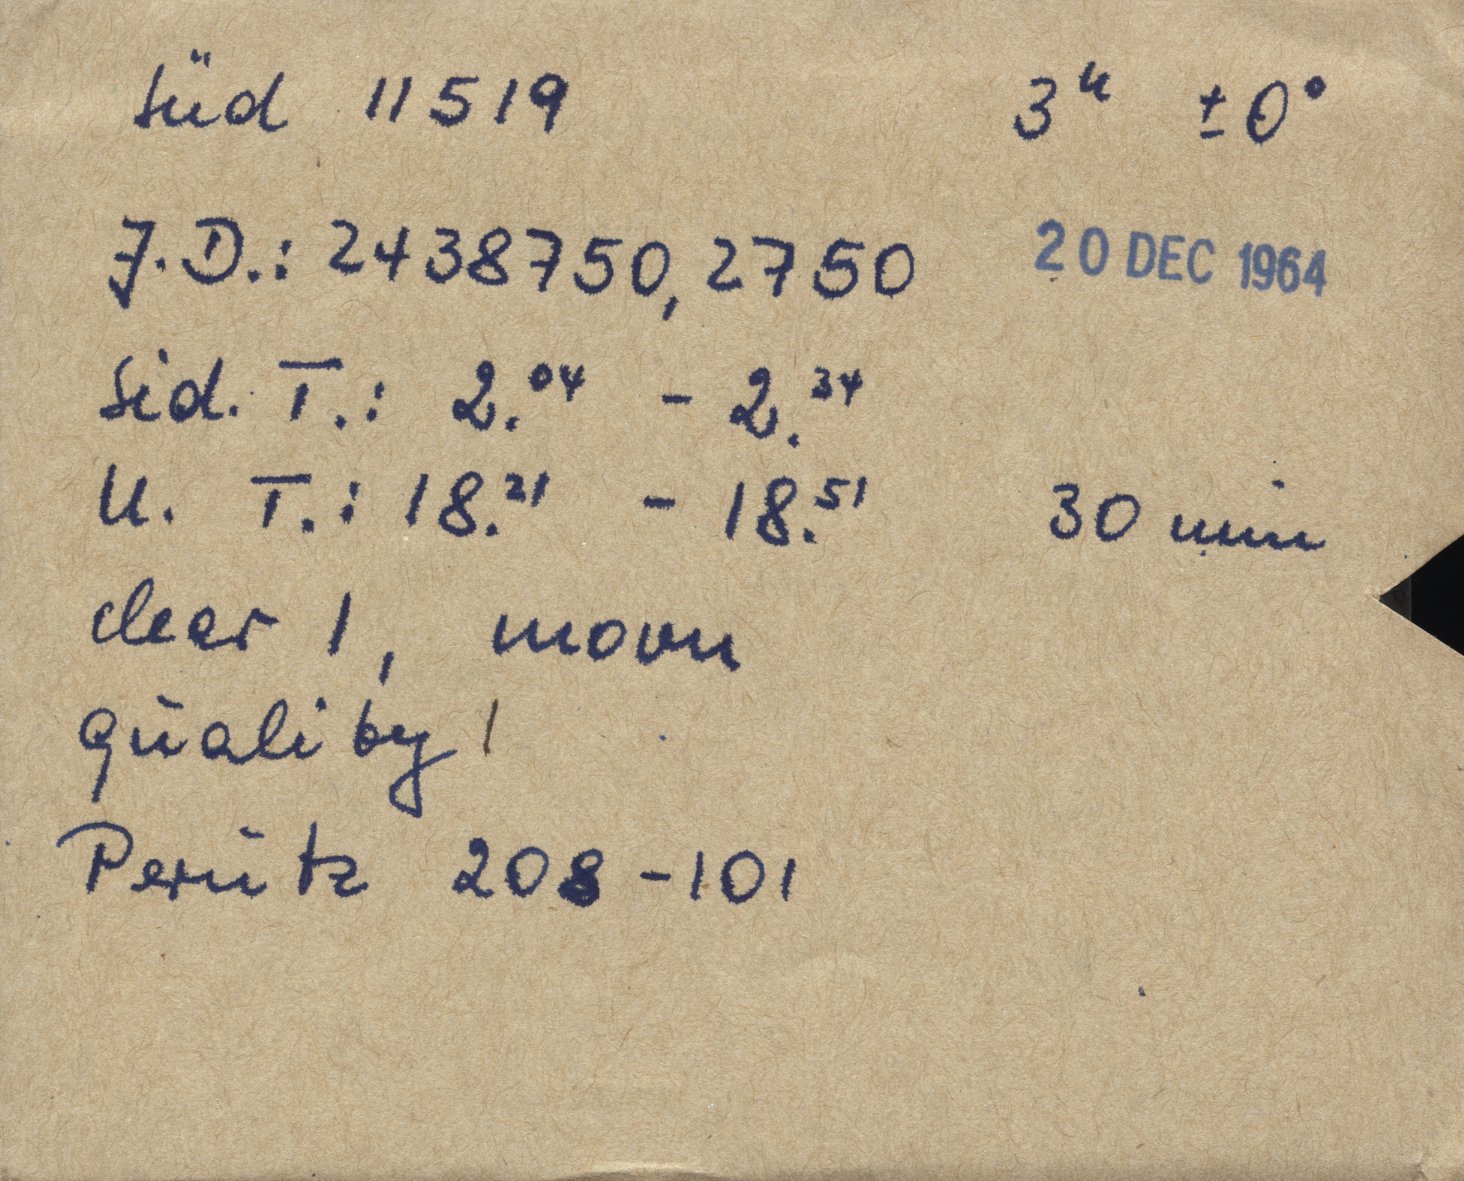 Süd 11519 3ʰ ±0°
J.D.: 2438750,2750 20 DEC 1964
Sid. T.: 2.04 - 2.34
U. T.: 18.21 - 18.51 30 min
clear 1, moon
quality 1
Perutz 208-101